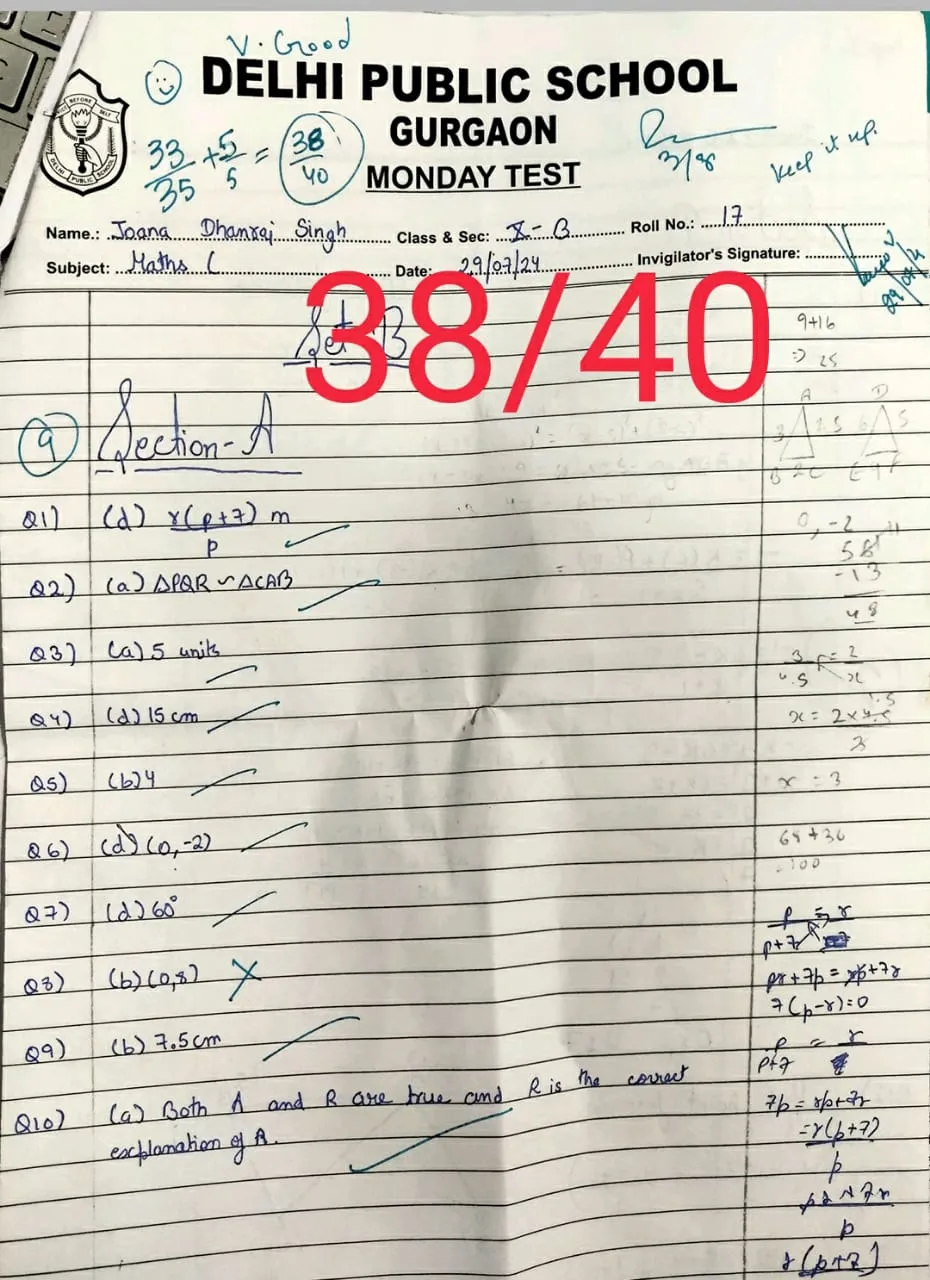 V. Good
DELHI PUBLIC SCHOOL
GURGAON
MONDAY TEST
33/35 + 5/5 = 38/40
3/8
Keep it up.
SERVICE BEFORE SELF
DELHI PUBLIC SCHOOL
Name.: Joana Dhanraj Singh Class & Sec: X-B Roll No.: 17
Subject: Maths ( Date: 29/07/24 Invigilator's Signature:
29/07/24
38/40
Set-B
9+16
=> 25
9 Section-A
A D
3 2.5 6 5
B 2 C E 4 F
Q1) (d) r(p+7) m
p
0, -2
58
-13
48
Q2) (a) ΔPQR ~ ΔCAB
Q3) (a) 5 units
3/4.5 = 2/x
Q4) (d) 15 cm
x = 2×4.5
3
Q5) (b) 4
x = 3
Q6) (d) (0,-2)
64+36
=100
Q7) (d) 60°
p = r
p+7
Q8) (b) (0,8)
pr+7p = rp+7r
7(p-r)=0
Q9) (b) 7.5cm
p = r
p+7
Q10) (a) Both A and R are true and R is the correct
explanation of A.
7p = rp+7r
=r(p+7)
p
p
r(p+7)